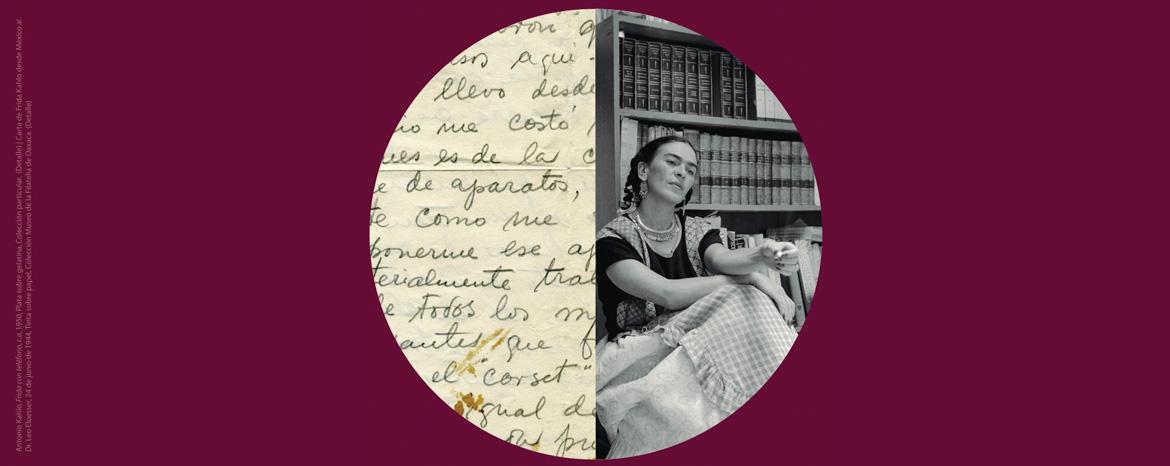 Antonio Kahlo, Frida con teléfono, c.a. 1950, Plata sobre gelatina, Colección particular. (Detalle) | Carta de Frida Kahlo desde México al
Dr. Leo Eloesser, 24 de junio de 1944, Tinta sobre papel, Colección Museo de la Filatelia de Oaxaca. (Detalle)
aqui
llevo desde
no me costó
ues es de la
de aparatos,
te como me
ponerme ese
terialmente
todos los
antes que
el "corset"
igual de